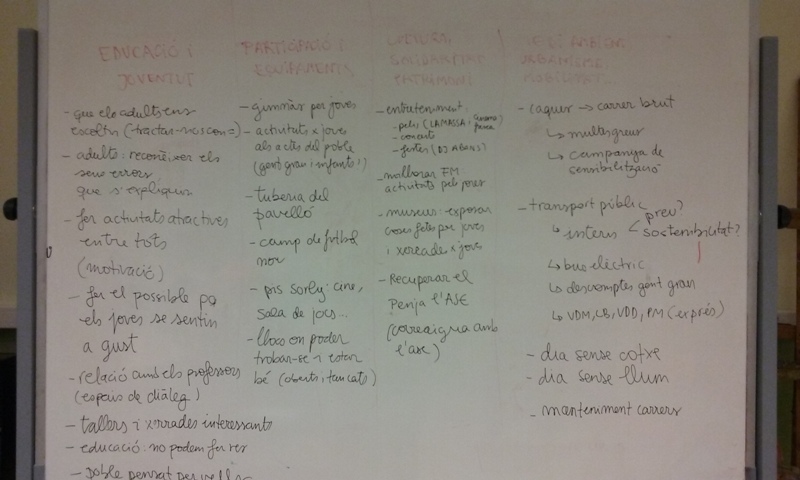 EDUCACIÓ I
JOVENTUT
- que els adults ens
escoltin (tractar-nos com =)
- adults: reconèixer els
seus errors
que s'expliquin
- fer activitats atractives
entre tots
(motivació)
- fer el possible pq
els joves se sentin
a gust
- relació amb els professors
(espais de diàleg)
- tallers i xerrades interessants
- educació: no podem fer res
- poble pensat per vells
PARTICIPACIÓ I
EQUIPAMENTS
- gimnàs per joves
- activitats x joves
als actes del poble
(gent gran i infants!)
- tuberia del
pavelló
- camp de futbol
nou
- pis sorly: cine,
sala de jocs...
- llocs on poder
trobar-se i estar
bé (oberts i tancats)
CULTURA,
SOLIDARITAT
PATRIMONI
- entreteniment:
- pelis (LA MASSA i
- concerts
- festes (DJ
- millorar FM
activitats pels joves
- museus: exposar
coses fetes per joves
i xerrades x joves
- Recuperar el
Penja l'ASE
(correaigua amb
l'ase)
MEDI AMBIENT
URBANISME
MOBILITAT...
- caques → carrer brut
↳ multes greus
↳ campanya de
sensibilització
- transport públic
↳ intern < preu?
sostenibilitat?
↳ bus elèctric
↳ descomptes gent gran
↳ VDM, CB, VDD, PM (exprés)
- dia sense cotxe
- dia sense llum
- manteniment carrers